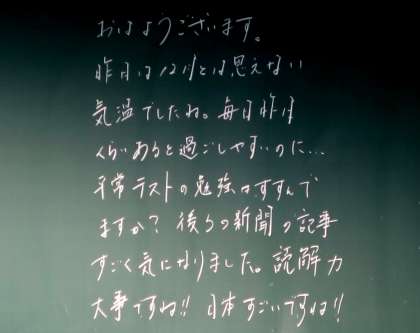 おはようございます。
昨日は12月とは思えない
気温でしたね。毎日昨日
くらいあると過ごしやすいのに…
平常テストの勉強はすすんで
ますか? 後ろの新聞の記事
すごく気になりました。読解力
大事ですね!! 日本すごいですね!!